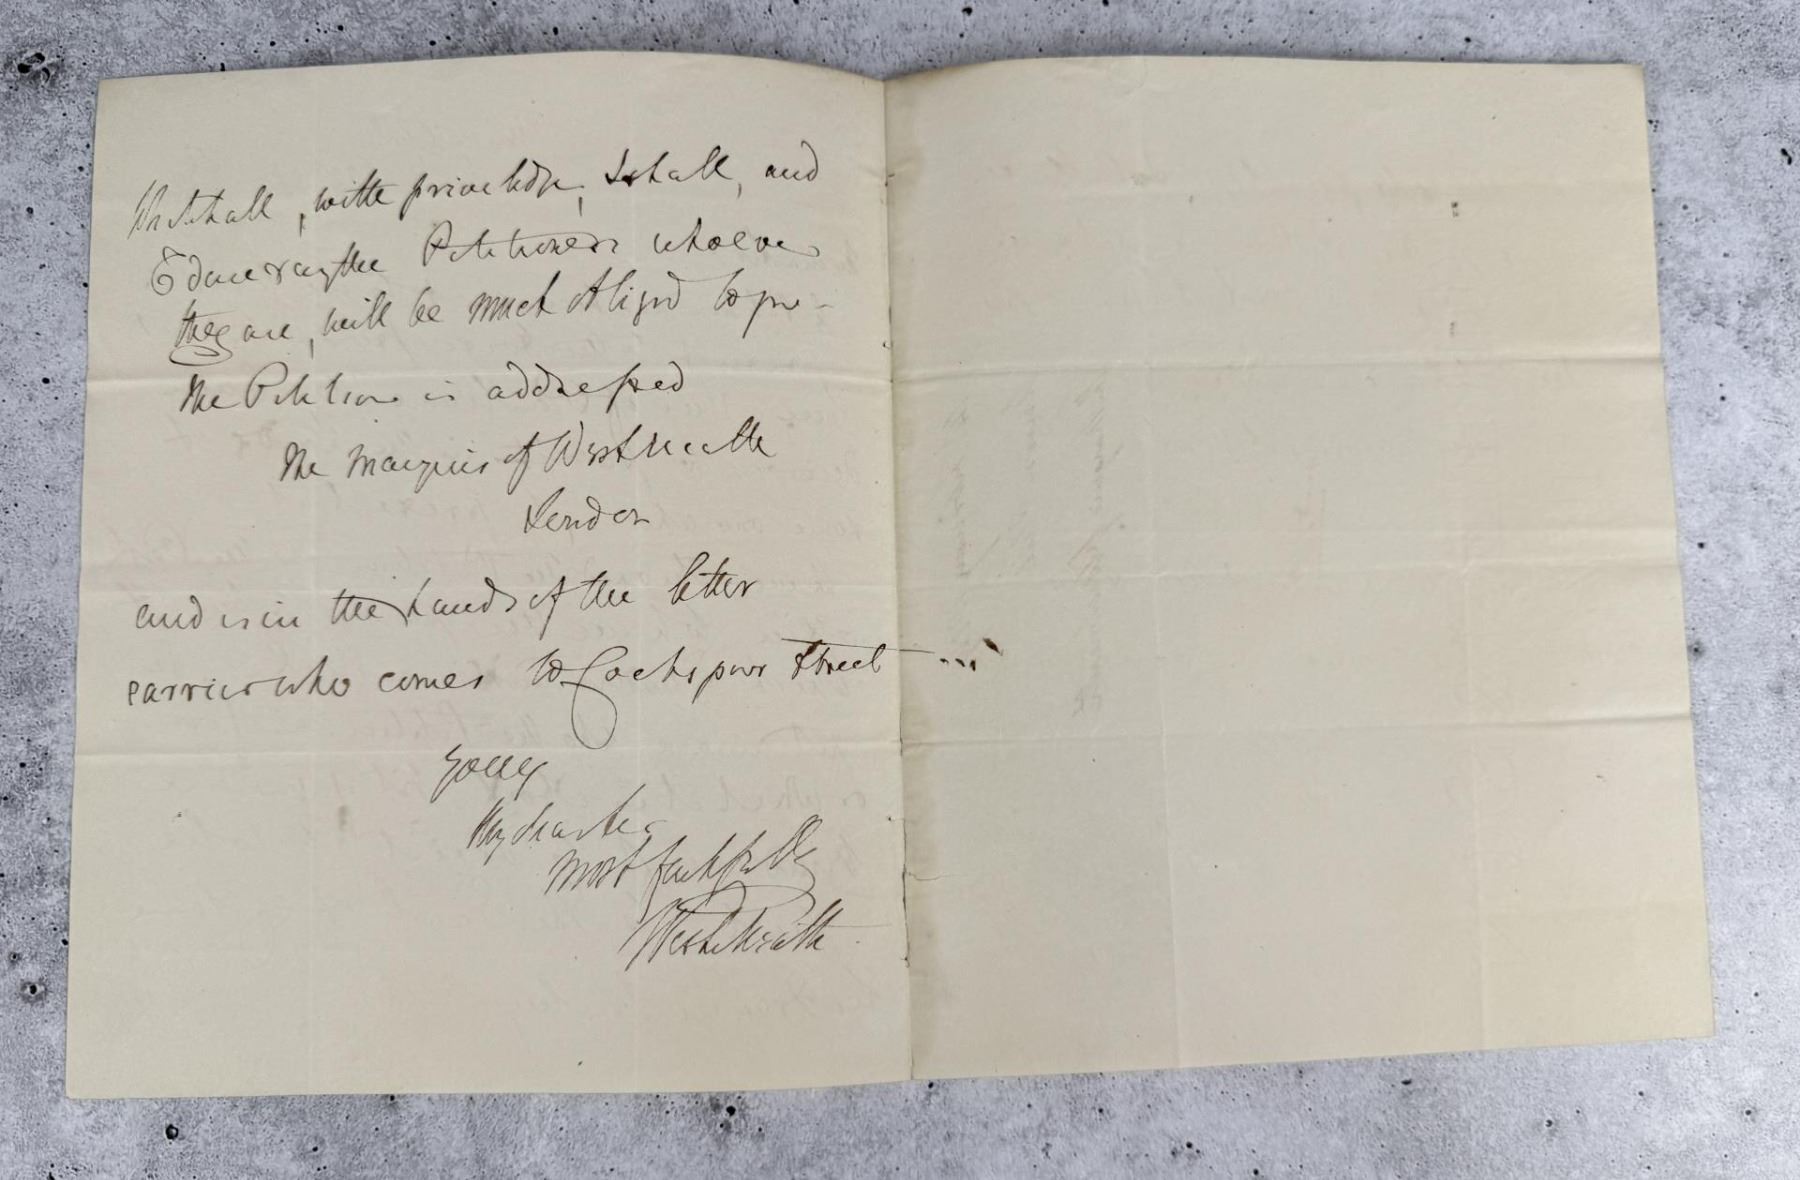 Whitehall, with prive ledge, I shall, and
I dare say the Petitioners whoever
they are, will be much obliged to you -
The Petition is addressed
The Marquis of Westmeath
London
and is in the hands of the letter
carrier who comes to Cockspur Street ...
Yours
My dear
most faithfully
Westmeath